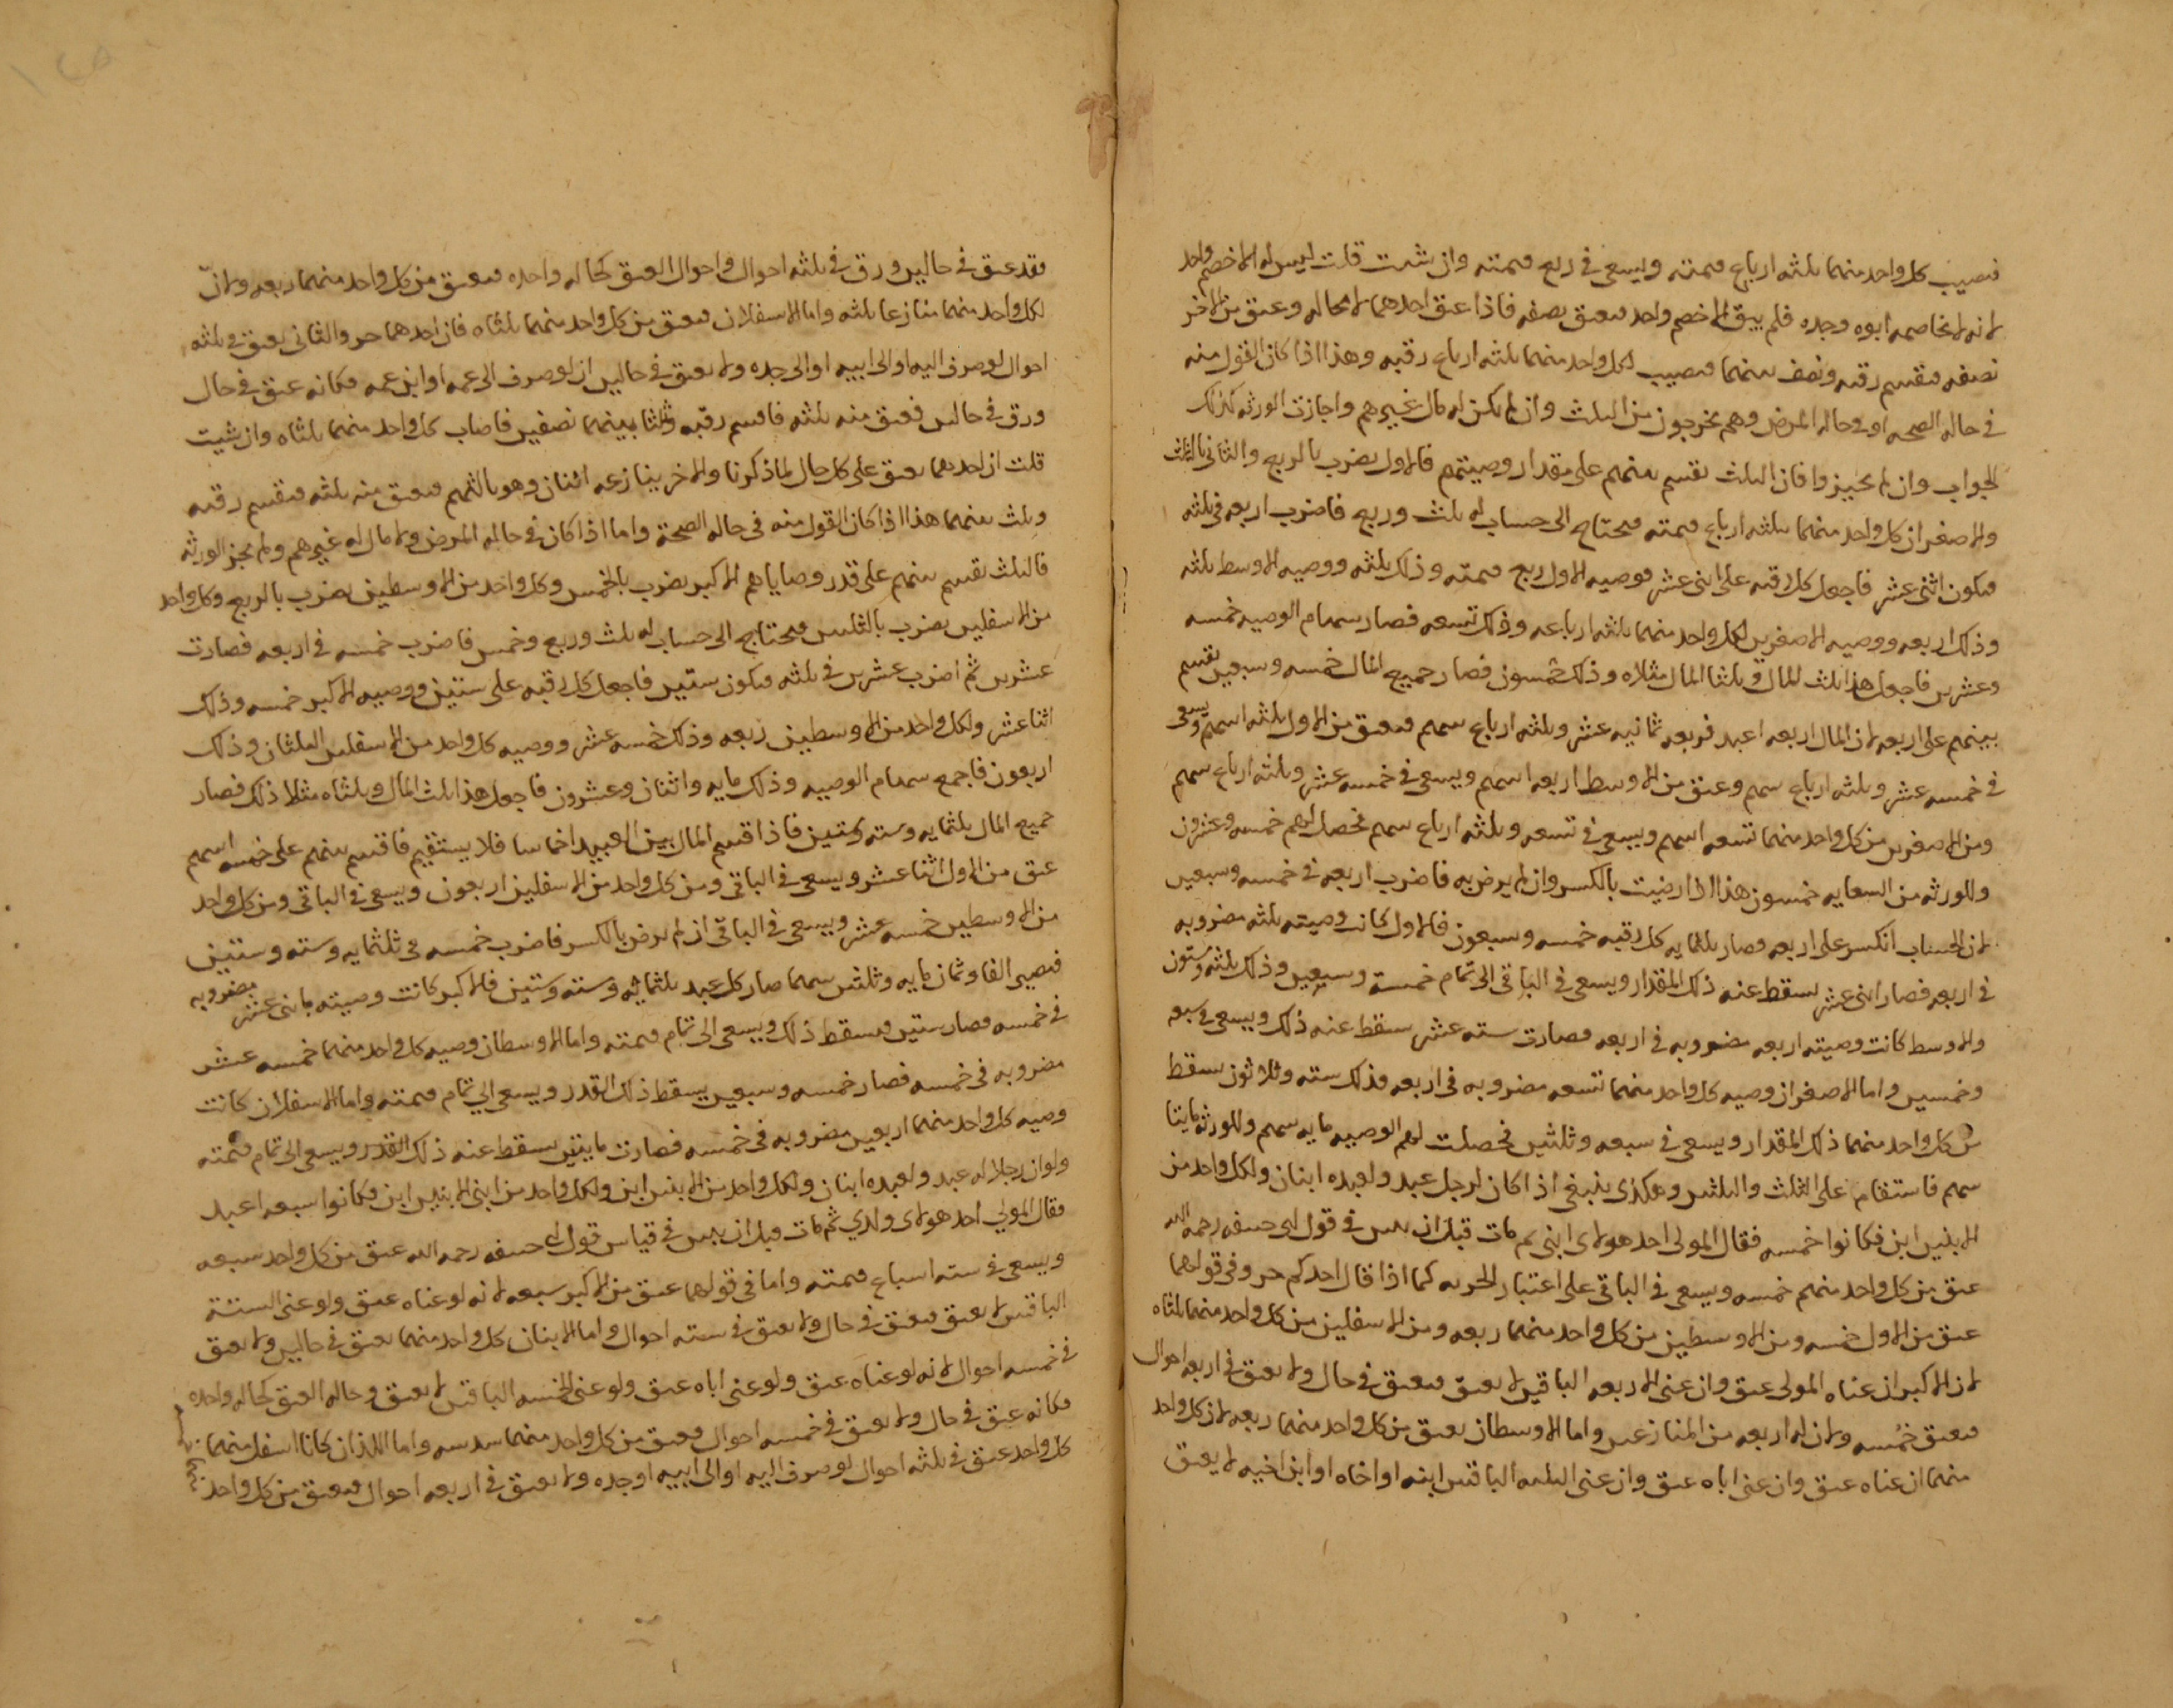 فيصيب كل واحد منهما ثلثه ارباع قيمته ويسعى في ربع قيمته وان شئت قلت ليس له الا خصم واحد
لانه لا يخاصمه ابوه وجده فلم يبق الا خصم واحد فيعتق نصفه فاذا عتق احدهما لا محاله وعتق من الاخر
نصفه فيقسم رقبه ونصف بينهما فيصيب لكل واحد منهما ثلثه ارباع رقبه وهذا اذا كان القول منه
في حاله الصحه او في حاله المرض وهم يخرجون من الثلث وان لم يكن له مال غيرهم واجازت الورثه كذلك
الجواب وان لم يجيزوا فان الثلث يقسم بينهم على مقدار وصيتهم فالاول يضرب بالربع والثاني بالثلث
والاصغران كل واحد منهما بثلثه ارباع قيمته فيحتاج الى حساب له ثلث وربع فاضرب اربعه في ثلثه
فيكون اثنى عشر فاجعل كل رقبه على اثنى عشر فوصيه الاول ربع قيمته وذلك ثلثه ووصيه الاوسط ثلثه
وذلك اربعه ووصيه الاصغرين لكل واحد منهما ثلثه ارباعه وذلك تسعه فصار سهام الوصيه خمسه
وعشرين فاجعل هذا ثلث المال وثلثا المال مثلاه وذلك خمسون فصار جميع المال خمسه وسبعين يقسم
بينهم على اربعه لان المال اربعه اعبد فربعه ثمانيه عشر وثلثه ارباع سهم فيعتق من الاول ثلثه اسهم ويسعى
في خمسه عشر وثلثه ارباع سهم وعتق من الاوسط اربعه اسهم ويسعى في خمسه عشر وثلثه ارباع سهم
ومن الاصغرين من كل واحد منهما تسعه اسهم ويسعى في تسعه وثلثه ارباع سهم فحصل لهم خمسه وعشرون
وللورثه من السعايه خمسون هذا اذا رضيت بالكسر وان لم يرض به فاضرب اربعه في خمسه وسبعين
لان الحساب انكسر على اربعه فصار ثلثمايه كل رقبه خمسه وسبعون فالاول كانت وصيته ثلثه مضروبه
في اربعه فصار اثنى عشر يسقط عنه ذلك المقدار ويسعى في الباقي الى تمام خمسة وسبعين وذلك ثلثه وستون
والاوسط كانت وصيته اربعه مضروبه في اربعه فصارت سته عشر سقط عنه ذلك ويسعى في تسعه
وخمسين واما الاصغران وصيه كل واحد منهما تسعه مضروبه في اربعه فذلك سته وثلاثون سقط
من كل واحد منهما ذلك المقدار ويسعى في سبعه وثلثين فحصلت لهم الوصيه مايه سهم وللورثه مايتا
سهم فاستقام على الثلث والثلثين وهكذى ينبغي اذا كان لرجل عبد ولعبده ابنان ولكل واحد من
الابنين ابن فكانوا خمسه فقال المولى احد هولاى ابنى ثم مات قبل ان يبين في قول ابى حنيفه رحمه الله
عتق من كل واحد منهم خمسه ويسعى في الباقي على اعتبار الحريه كما اذا قال احدكم حر وفي قولهما
عتق من الاول خمسه ومن الاوسطين من كل واحد منهما ربعه ومن الاسفلين من كل واحد منهما ثلثاه
لان الاكبر ان عناه المولى عتق وان عنى الاربعه الباقين لا يعتق فيعتق في حال ولا يعتق في اربعه احوال
فيعتق خمسه ولان له اربعه من المنازعين واما الاوسطان يعتق من كل واحد منهما ربعه لان كل واحد
منهما ان عناه عتق وان عنى اباه عتق وان عنى الثلثه الباقين ابنه او اخاه او ابن اخيه لا يعتق
فقد عتق في حالين ورق في ثلثه احوال واحوال العتق كحاله واحده فيعتق من كل واحد منهما ربعه ولان
لكل واحد منهما منازعا ثلثه واما الاسفلان فيعتق من كل واحد منهما ثلثاه فان احدهما حر والثاني يعتق في ثلثه
احوال لو صرف اليه او الى ابيه او الى جده ولا يعتق في حالين ان لو صرف الى عمه او ابن عمه فكانه عتق في حال
ورق في حالين فعتق منه ثلثه فاقسم رقبه وثلثا بينهما نصفين فاصاب كل واحد منهما ثلثاه وان شيت
قلت ان احدهما يعتق على كل حال لما ذكرنا والاخر ينازعه اثنان وهو بالثهم فيعتق منه ثلثه فيقسم رقبه
وثلث بينهما هذا اذا كان القول منه في حاله الصحة واما اذا كان في حاله المرض ولا مال له غيرهم ولم يجز الورثه
فالثلث يقسم بينهم على قدر وصاياهم الاكبر يضرب بالخمس وكل واحد من الاوسطين يضرب بالربع وكل واحد
من الاسفلين يضرب بالثلثين فيحتاج الى حساب له ثلث وربع وخمس فاضرب خمسه في اربعه فصارت
عشرين ثم اضرب عشرين في ثلثه فيكون ستين فاجعل كل رقبه على ستين ووصيه الاكبر خمسه وذلك
اثنا عشر ولكل واحد من الاوسطين ربعه وذلك خمسه عشر ووصيه كل واحد من الاسفلين الثلثان وذلك
اربعون فاجمع سهام الوصيه وذلك مايه واثنان وعشرون فاجعل هذا ثلث المال وثلثاه مثلا ذلك فصار
جميع المال ثلثمايه وسته وستين فاذا قسم المال بين العبيد اخماسا فلا يستقيم فاقسم بينهم على خمسه اسهم
عتق من الاول اثنا عشر ويسعى في الباقي ومن كل واحد من الاسفلين اربعون ويسعى في الباقي ومن كل واحد
من الاوسطين خمسه عشر ويسعى في الباقي ان لم يرض بالكسر فاضرب خمسه في ثلثمايه وسته وستين
فيصير الفا وثمان مايه وثلثين سهما صار كل عبد ثلثمايه وسته وستين فالاكبر كانت وصيته باثنى عشر مضروبه
في خمسه فصار ستين فيسقط ذلك ويسعى الى تمام قيمته واما الاوسطان وصيه كل واحد منهما خمسه عشر
مضروبه في خمسه فصار خمسه وسبعين يسقط ذلك القدر ويسعى الى تمام قيمته واما الاسفلان كانت
وصيه كل واحد منهما اربعين مضروبه في خمسه فصارت مايتين سقط عنه ذلك القدر ويسعى الى تمام قيمته
ولو ان رجلا له عبد ولعبده ابنان ولكل واحد من الابنين ابن ولكل واحد من ابنى الابنين ابن فكانوا سبعه اعبد
فقال المولى احد هولاى ولدي ثم مات قبل ان يبين في قياس قول ابى حنيفه رحمه الله عتق من كل واحد سبعه
ويسعى في سته اسباع قيمته واما في قولهما عتق من الاكبر سبعه لانه لو عناه عتق ولو عنى الستة
الباقين لا يعتق فيعتق في حال ولا يعتق في سته احوال واما الابنان كل واحد منهما يعتق في حالين ولا يعتق
في خمسه احوال لانه لو عناه عتق ولو عنى اباه عتق ولو عنى الخمسه الباقين لا يعتق وحاله العتق كحاله واحده
فكانه عتق في حال ولا يعتق في خمسه احوال فيعتق من كل واحد منهما سدسه واما اللذان كانا اسفل منهما
كل واحد عتق في ثلثه احوال لو صرف اليه او الى ابيه او جده ولا يعتق في اربعه احوال فيعتق من كل واحد